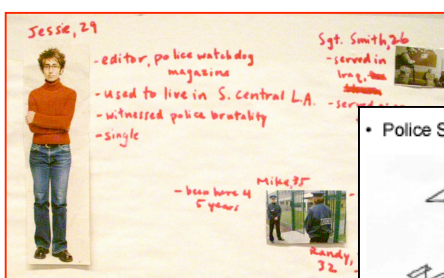 Jessie, 29
- editor, police watchdog
magazine
- used to live in S. Central L.A.
- witnessed police brutality
- single
Sgt. Smith, 26
- served in
Iraq,
- served
• Police S
Mike, 35
- been here 4
5 years
Randy,
32